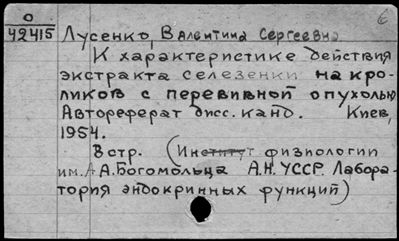 0
42415 Лусенко, Валентина Сергеевна
К характеристике действия
экстракта селезенки на кро-
ликов с перевивной опухолью
Автореферат дисс. канд. Киев,
1954.
В стр. (Институт физиологии
им. А.А. Богомольца А.Н. УССР. Лабора-
тория эндокринных функций)